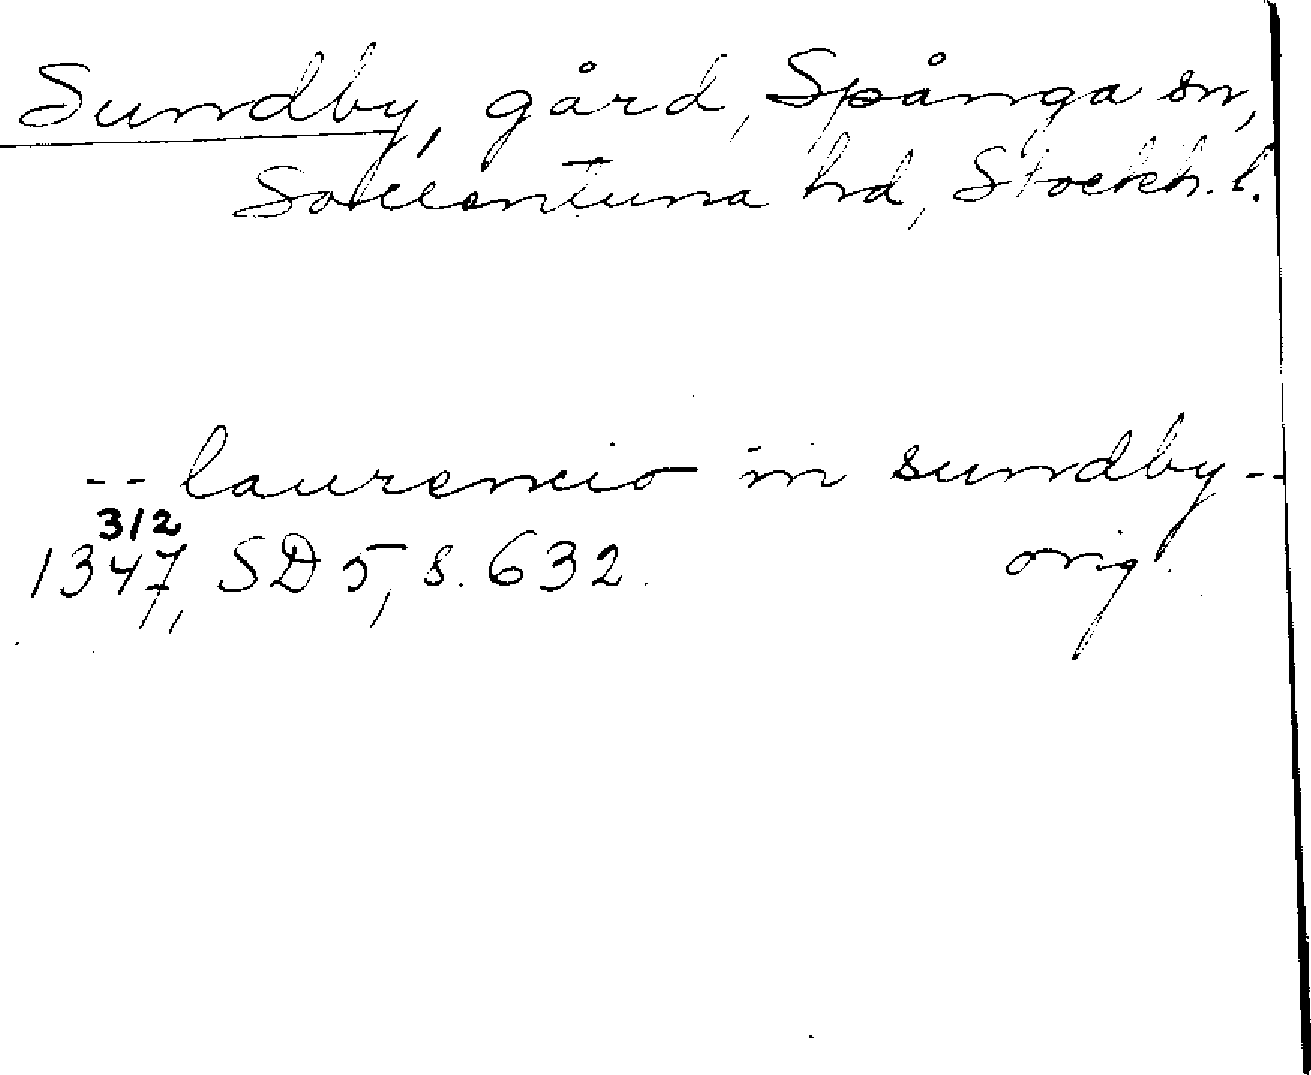 Sundby, gård, Spånga sn,
Sollentuna hd, Stockh. l.
-- laurencio in sundby --
3/2
1347, SD 5, s. 632. orig.